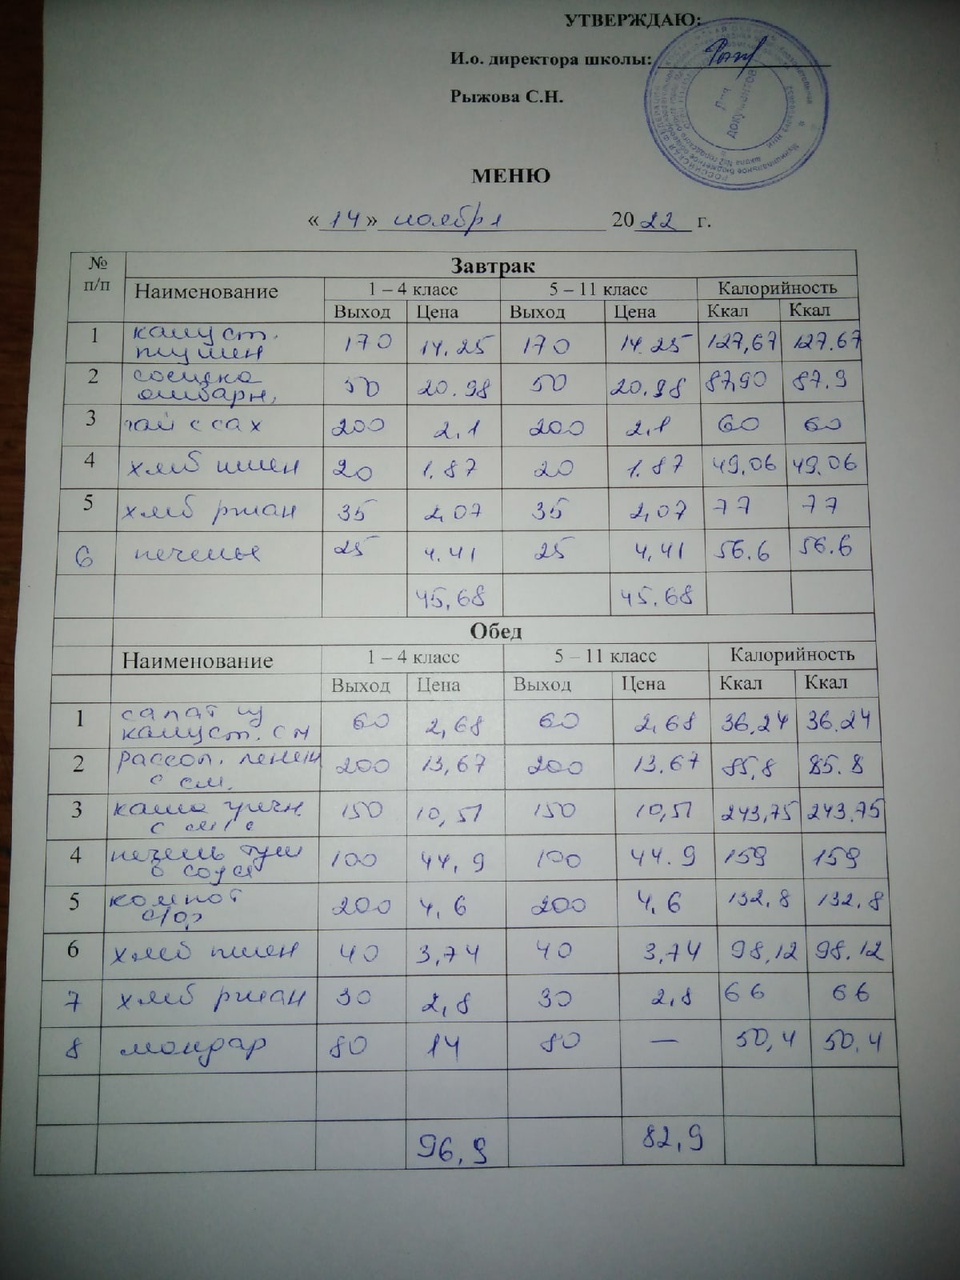 УТВЕРЖДАЮ:
И.о. директора школы:
Рыжова С.Н.
Для
документов
МЕНЮ
«14» ноября 2022 г.
№ п/п Завтрак
Наименование 1 – 4 класс 5 – 11 класс Калорийность
Выход Цена Выход Цена Ккал Ккал
1 капуст. тушен 170 14.25 170 14.25 127,67 127.67
2 сосиска отварн, 50 20.98 50 20.98 87,90 87.9
3 чай с сах 200 2,1 200 2,1 60 60
4 хлеб пшен 20 1.87 20 1.87 49,06 49.06
5 хлеб ржан 35 2,07 35 2,07 77 77
6 печенье 25 4.41 25 4,41 56.6 56.6
45,68 45.68
Обед
Наименование 1 – 4 класс 5 – 11 класс Калорийность
Выход Цена Выход Цена Ккал Ккал
1 салат из капуст. с м 60 2,68 60 2,68 36,24 36.24
2 рассол. ленин с см. 200 13,67 200 13.67 85,8 85.8
3 каша гречн с м/с 150 10,51 150 10,51 243,75 243.75
4 печень туш в соусе 100 44,9 100 44.9 159 159
5 компот с/ф 200 4,6 200 4,6 132,8 132.8
6 хлеб пшен 40 3,74 40 3,74 98,12 98.12
7 хлеб ржан 30 2,8 30 2,8 66 66
8 мондар 80 14 80 — 50,4 50,4
96,9 82,9